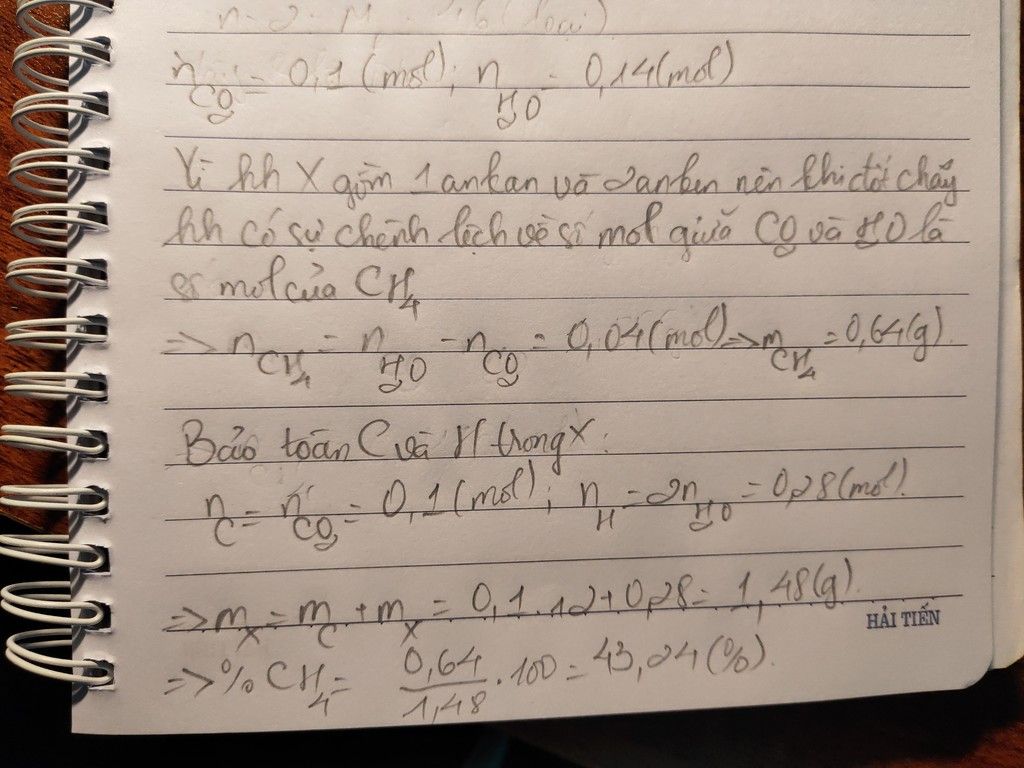 n = 2 : M = 16 (loại)
n CO2 = 0,1 (mol); n H2O = 0,14 (mol)
Vì hh X gồm 1 ankan và 2 anken nên khi đốt cháy
hh có sự chênh lệch về số mol giữa CO2 và H2O là
số mol của CH4
=> n CH4 = n H2O - n CO2 = 0,04 (mol) => m CH4 = 0,64 (g).
Bảo toàn C và H trong X:
n C = n CO2 = 0,1 (mol); n H = 2n H2O = 0,28 (mol).
=> m X = m C + m X = 0,1 . 12 + 0,28 = 1,48 (g).
HẢI TIẾN
=> % CH4 = 0,64/1,48 . 100 = 43,24 (%).